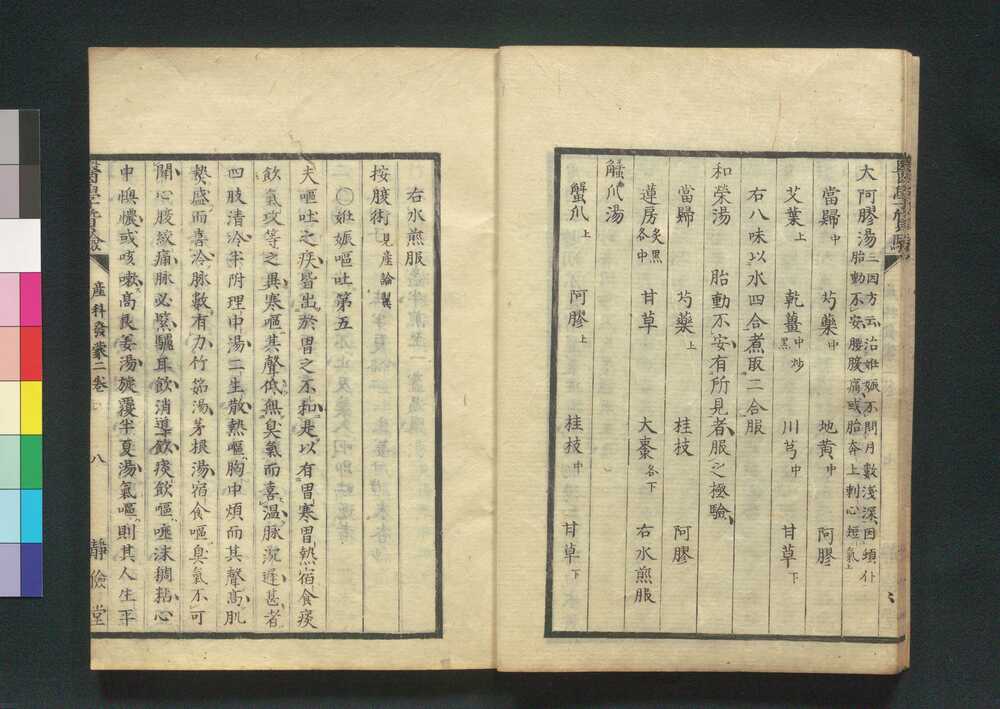 大阿膠湯 三因方云治姙娠不問月數淺深因頓仆
胎動不安腰腹痛或胎奔上刺心短氣上
當歸中 芍藥中 地黃中 阿膠
艾葉上 乾薑中炒黒 川芎中 甘草下
右八味以水四合煮取二合服
和榮湯 胎動不安有所見者服之極驗
當歸 芍藥上 桂枝 阿膠
蓮房炙黒各中 甘草 大棗各下 右水煎服
蟹爪湯
蟹爪上 阿膠上 桂枝中 甘草下
右水煎服
按腹術 見產論翼
○姙娠嘔吐第五
夫嘔吐之疾皆出於胃之不和是以有胃寒胃熱宿食痰
飲氣攻等之異寒嘔其聲低無臭氣而喜溫脉沈遲甚者
四肢清冷半附理中湯二生散熱嘔胸中煩而其聲高肌
熱盛而喜冷脉數有力竹筎湯茅根湯宿食嘔臭氣不可
聞心腹絞痛脉必緊驅耳飲消導飲痰飲嘔唾沫稠粘心
中懊憹或咳嗽高良姜湯旋覆半夏湯氣嘔則其人生平
產科發蒙二卷 八 靜儉堂